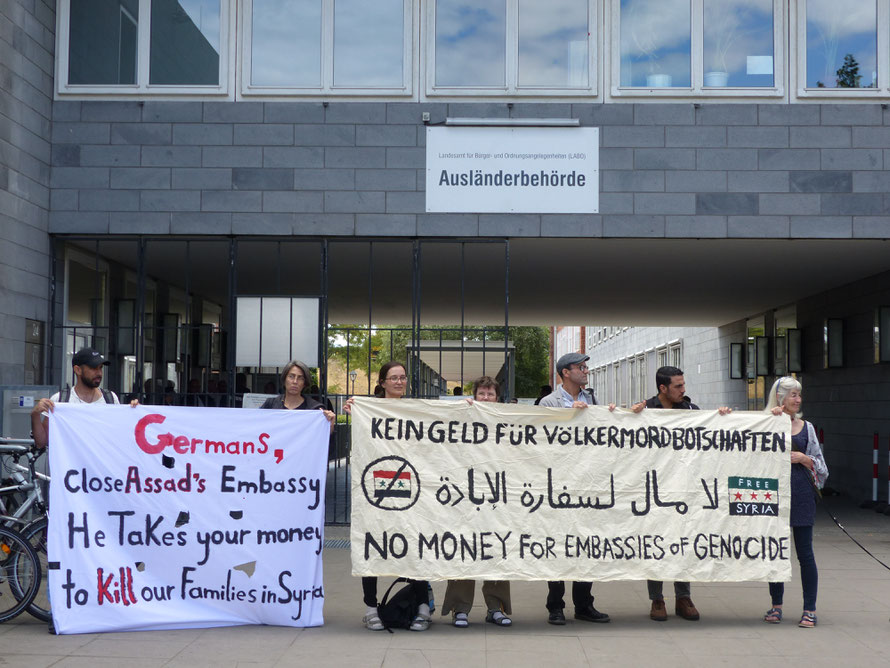 Landesamt für Bürger- und Ordnungsangelegenheiten (LABO)
Ausländerbehörde
Germans,
Close Assad's Embassy
He Takes your money
to Kill our Families in Syria
KEIN GELD FÜR VÖLKERMORDBOTSCHAFTEN
لا مال لسفارة الإبادة
FREE
SYRIA
NO MONEY FOR EMBASSIES OF GENOCIDE